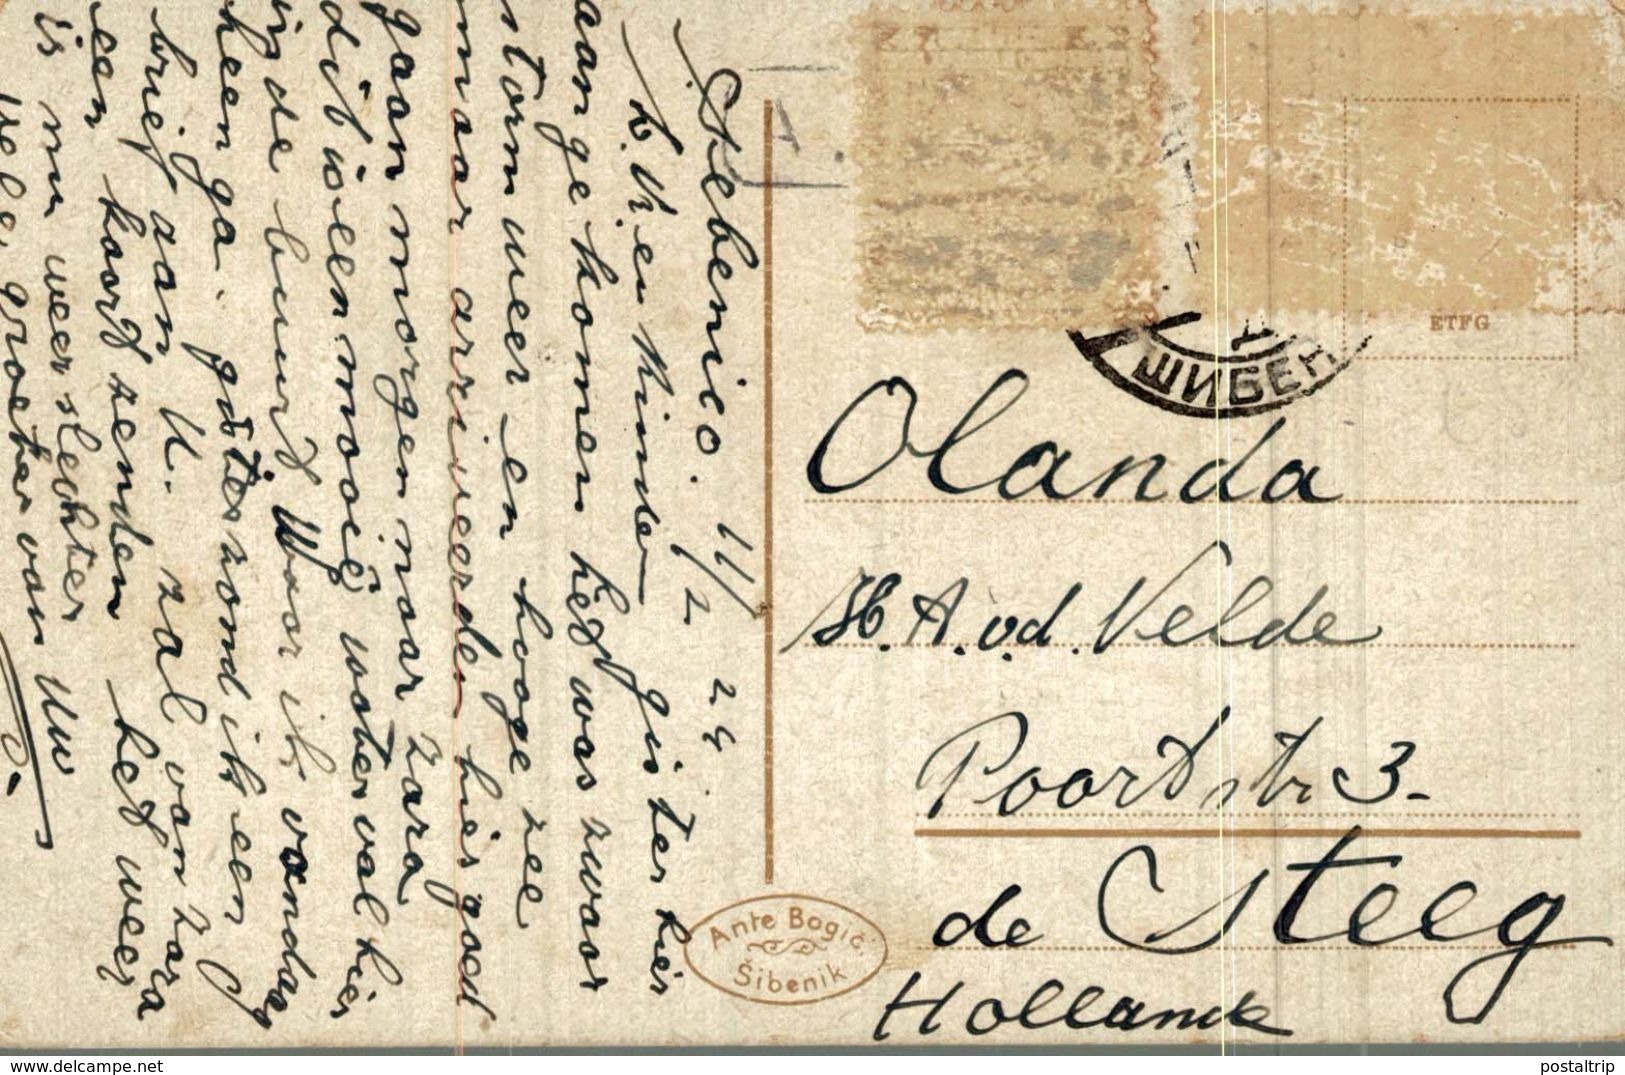 Sebenico. 11/2 24
L. Vrienkinder gister hier
aangekomen het was zwaar
stormweer en hooge zee
maar arriveerden hier goed
gaan morgen naar Zara
dit is een mooie waterval hier
in de buurt Waar ik vandaag
heen ga. gisterzond ik een
brief aan U. zal van Zara
een kaart zenden het weer
is nu weer slechter
vele groeten van Uw
ETFG
ШИБЕН
Olanda
H. A. v. d. Velde
Poortstr 3-
de Steeg
Hollande
Ante Bogić.
Šibenik
postaltrip